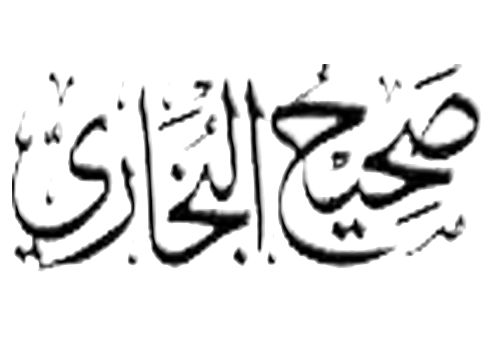 صحيح البخاري